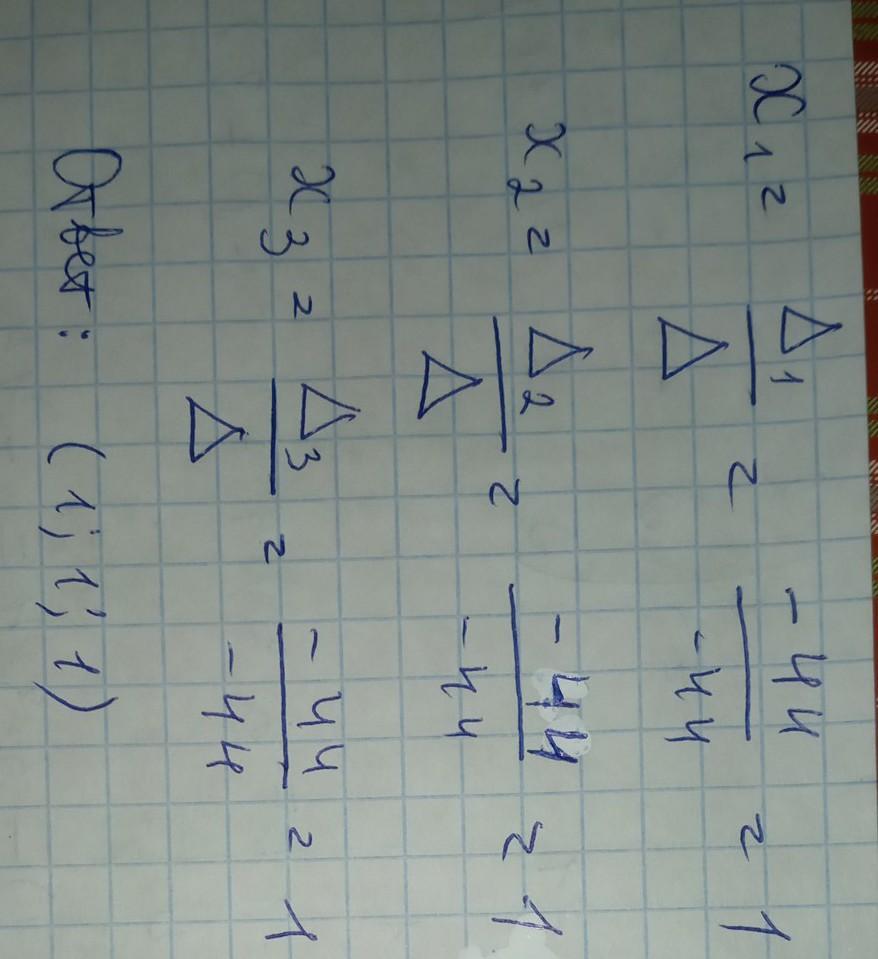 x₁ = Δ₁/Δ = -44/-44 = 1
x₂ = Δ₂/Δ = -44/-44 = 1
x₃ = Δ₃/Δ = -44/-44 = 1
Ответ: (1; 1; 1)